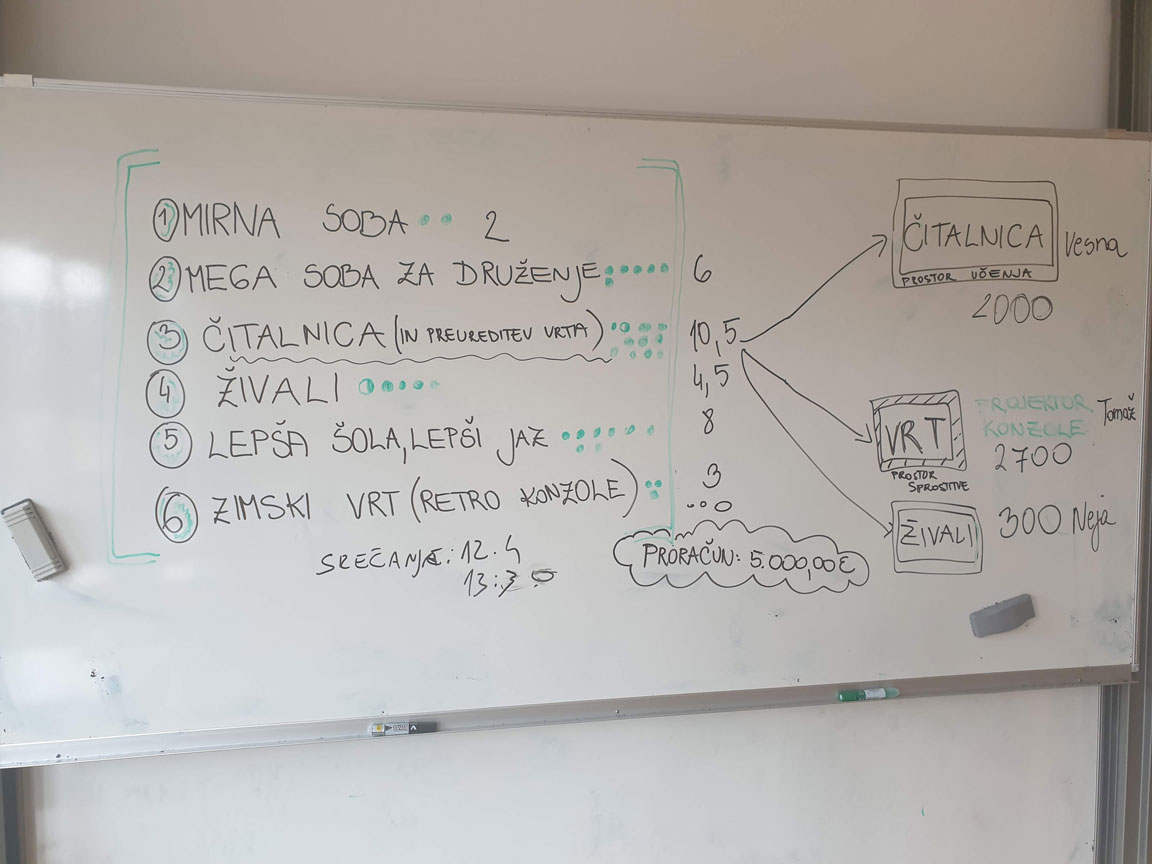 1 MIRNA SOBA 2
2 MEGA SOBA ZA DRUŽENJE 6
3 ČITALNICA (IN PREUREDITEV VRTA) 10,5
4 ŽIVALI 4,5
5 LEPŠA ŠOLA, LEPŠI JAZ 8
6 ZIMSKI VRT (RETRO KONZOLE) 3
SREČANJE: 12.4
13:30
PRORAČUN: 5.000,00€
ČITALNICA Vesna
PROSTOR UČENJA
2000
VRT PROJEKTOR Tomaž
KONZOLE
2700
PROSTOR
SPROSTITVE
ŽIVALI 300 Neja